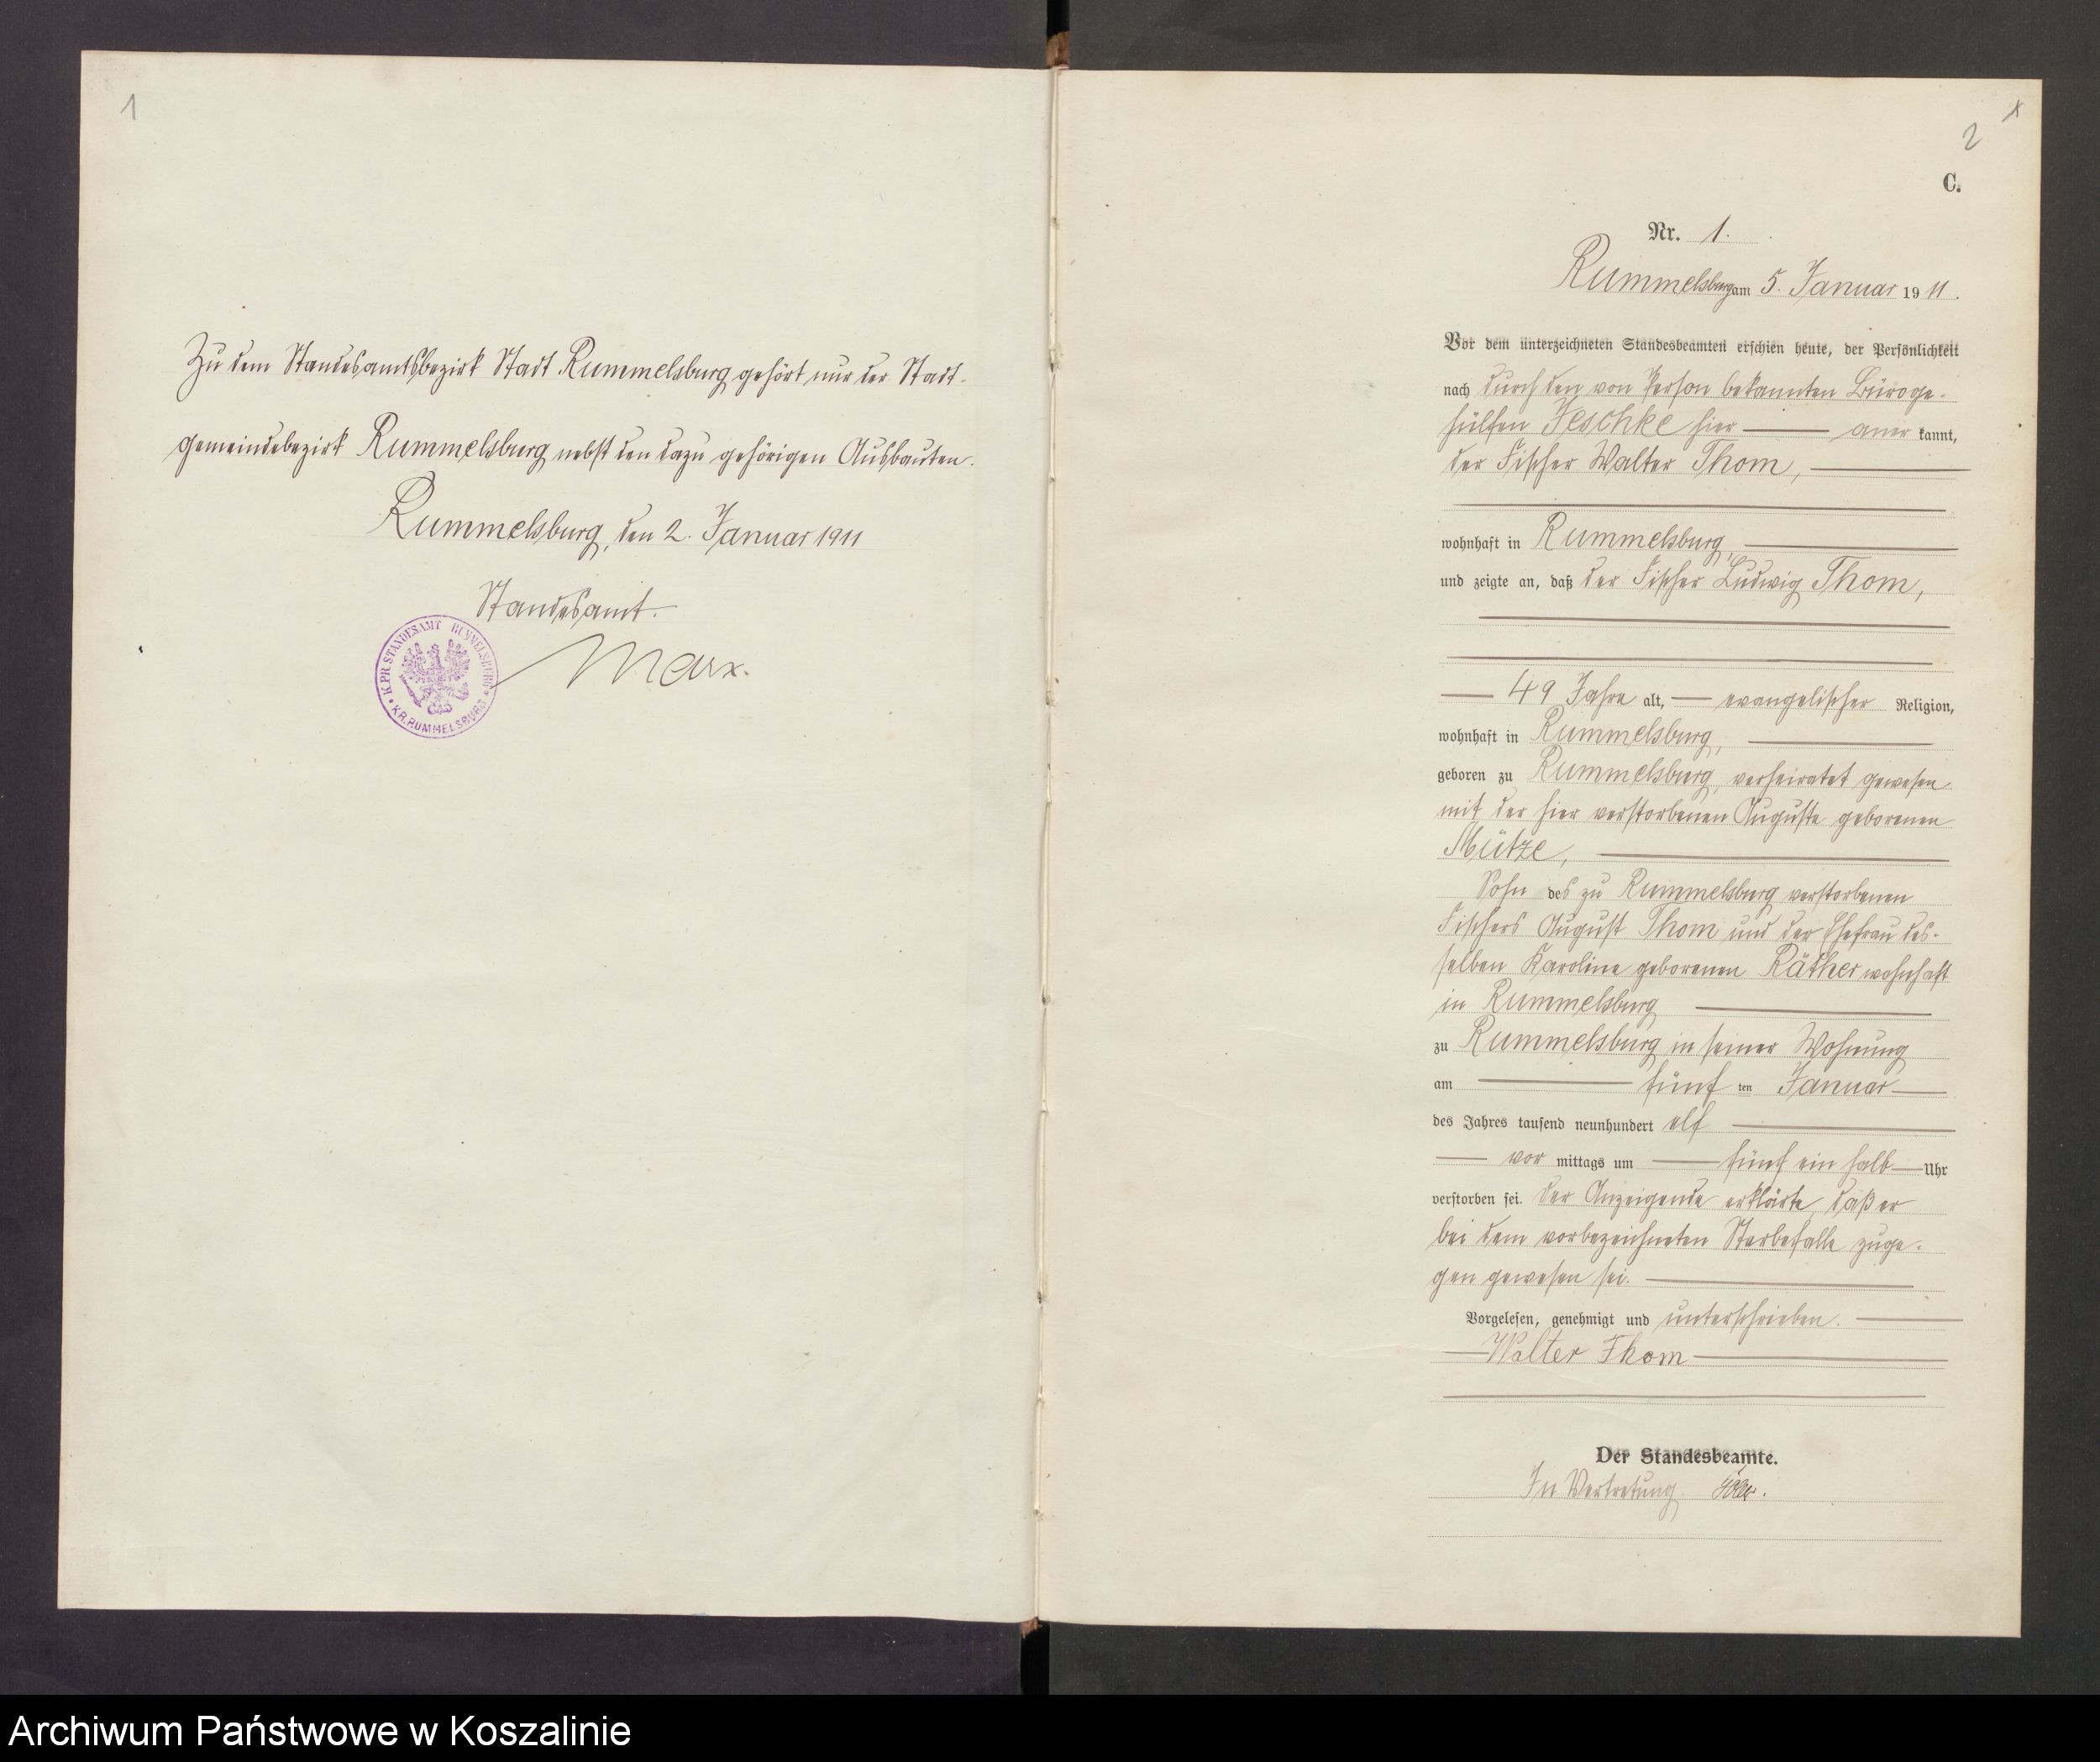 1
Zu dem Standesamtsbezirk Stadt Rummelsburg gehört nur der Stadt-
gemeindebezirk Rummelsburg nebst den dazu gehörigen Ausbauten.
Rummelsburg, den 2. Januar 1911
Standesamt.
Marx.
K. PR. STANDESAMT RUMMELSBURG
KR. RUMMELSBURG
2
C.
Nr. 1.
Rummelsburg am 5. Januar 1911.
Vor dem unterzeichneten Standesbeamten erschien heute, der Persönlichkeit
nach durch den von Person bekannten Büroge-
hülfen Jeschke hier aner kannt,
der Fischer Walter Thom,
wohnhaft in Rummelsburg,
und zeigte an, daß der Fischer Ludwig Thom,
49 Jahre alt, evangelischer Religion,
wohnhaft in Rummelsburg,
geboren zu Rummelsburg, verheiratet gewesen
mit der hier verstorbenen Auguste geborenen
Mütze,
Sohn des zu Rummelsburg verstorbenen
Fischers August Thom und der Ehefrau des-
selben Karoline geborenen Räther wohnhaft
in Rummelsburg
zu Rummelsburg in seiner Wohnung
am fünf ten Januar
des Jahres tausend neunhundert elf
vor mittags um fünf ein halb Uhr
verstorben sei. Der Anzeigende erklärte, daß er
bei dem vorbezeichneten Sterbefalle zuge-
gen gewesen sei.
Vorgelesen, genehmigt und unterschrieben.
Walter Thom
Der Standesbeamte.
In Vertretung
Archiwum Państwowe w Koszalinie